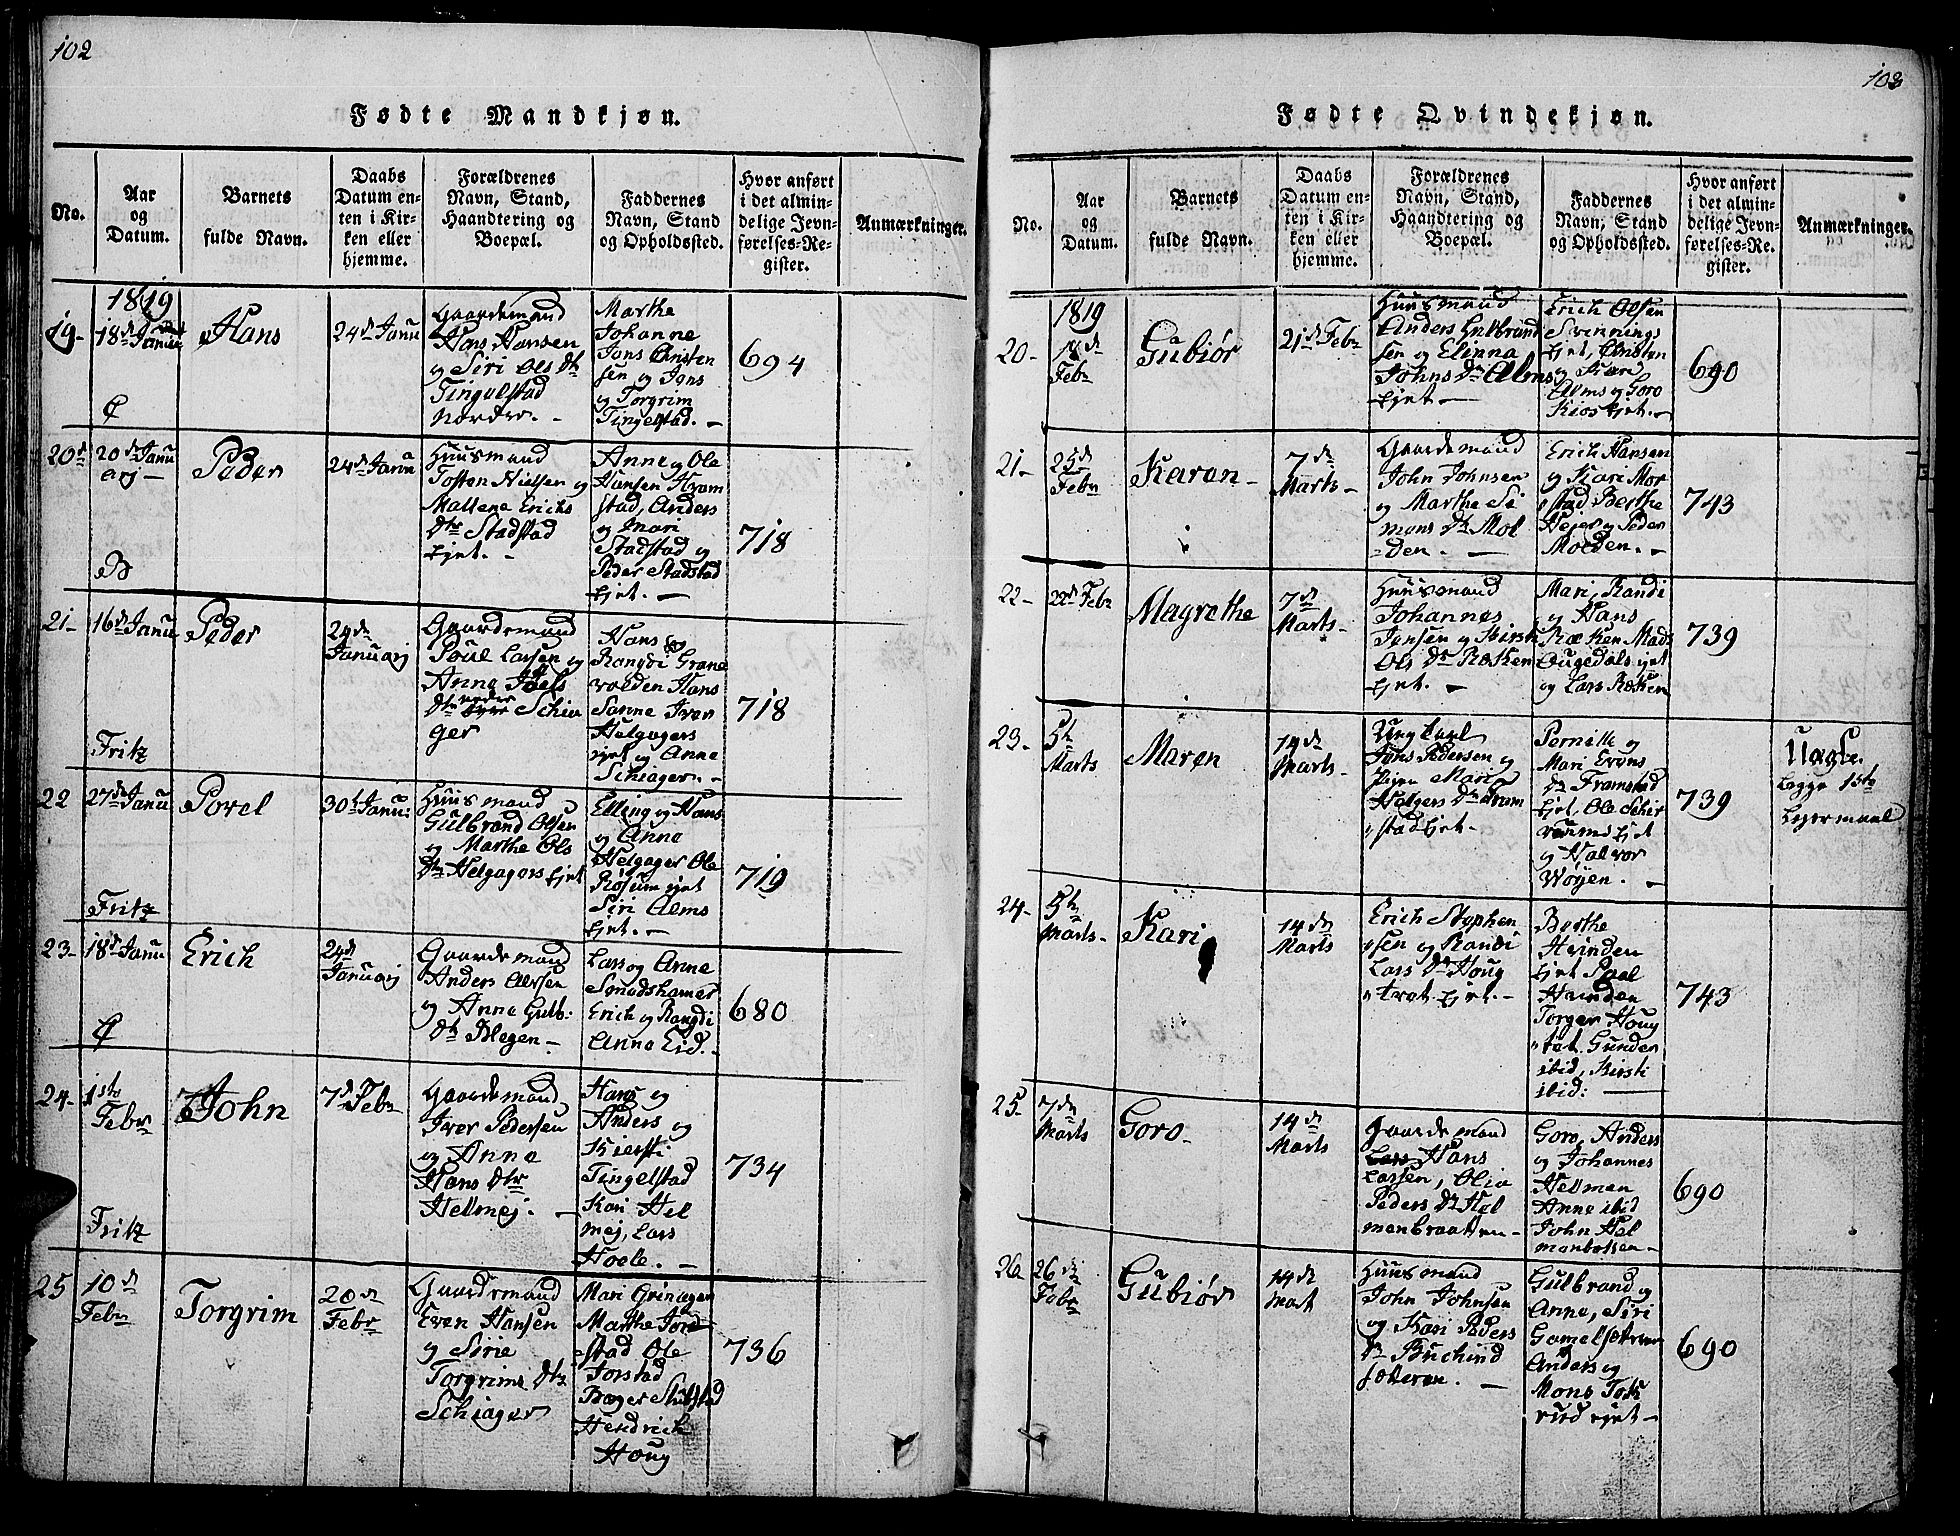 102
Fødte Mandkjøn.
No.
Aar
og
Datum.
Barnets
fulde Navn.
Daabs
Datum en-
ten i Kir-
ken eller
hjemme.
Forældrenes
Navn, Stand,
Haandtering og
Boepæl.
Faddernes
Navn, Stand
og Opholdssted.
Hvor anført
i det almin-
delige Jevn-
førelses-Re-
gister.
Anmærkninger.
1819
19-
18de Janu
Hans
24de Janu
Gaardsmand
Hans Hansen
og Siri Ols Dtr
Tingelstad
nordre. -
Marthe
Johanne
Jens Christen
sen og Jens
og Torgrim
Tingelstad. -
694
20de
20de Janu
arj -
Peder
24de Janu
Huusmand
Tosten Nielsen og
Mallene Erichs
Dtr Stadstad
Ejet. -
Anne og Ole
Hansen Fram
stad, Anders
og Mari
Stadstad og
Peder Stadstad
Ejet. -
718
21-
16de Janu
Fritz
Peder
24de
Januarj
Gaardsmand
Poul Larsen og
Anne Joels
Dtr nedre Schia
ger
Hans og
Rangdi Grana
volden Hans
Sanne Iver
Helgagers
ejet og Anne
Schiager. -
718
22
27de Janu
Fritz
Povel
30te Janu:
Huusmand
Gulbrand Olsen
og Marthe Ols
Dtr Helgagers Ejet
Elling og Hans
og Anne
Helgager Ole
Rosum ejet
Siri Alms
Ejet. -
719
23-
18de Janu
Erich
24de
Januarj
Gaardsmand
Anders Alersen
og Anne Gulb:
Dtr Blegen -
Lars og Anne
Smedshamer
Erich og Rangdi
Anne Eid. -
680
24-
1ste
Febr
Fritz
John
7de Febr
Gaardsmand
Iver Pedersen
og Anne
Hans Dtr
Helmej. -
Hans og
Anders og
Kiersti
Tingelstad
Kari Hel
mej, Lars
Hoele. -
734
25
10de
Febr
Torgrim
20de
Febr
Gaardsmand
Even Hansen
og Sirie
Torgrims Dtr
Schiager
Mari Grinagen
Marthe Jor
stad Ole
Jorstad
Hendrich
Houg
736
103
Fødte Qvindekjøn.
No.
Aar
og
Datum.
Barnets
fulde Navn.
Daabs
Datum en-
ten i Kir-
ken eller
hjemme.
Forældrenes
Navn, Stand,
Haandtering og
Boepæl.
Faddernes
Navn, Stand
og Opholdssted.
Hvor anført
i det almin-
delige Jevn-
førelses-Re-
gister.
Anmærkninger.
1819
20-
18de
Febr
Gubiør
21de Febr
Huusmand
Anders Gulbrand
sen og Elinna
Johns Dr Alms
Ejet -
Erich Olsen
Svennings
Ejet, Christen
og Kari
Alms og Goro
Kios Ejet. -
690
21-
25de
Febr
Karen -
7de
Marts -
Gaardsmand
John Johnsen
og Marthe Si
mons Dr Mol
den. -
Erich Hansen
og Kari Mor
stad Berthe
Hejer og Peder
Molden. -
743
22-
22de Febr
Magrethe
7de
Marts -
Huusmand
Johannes
Jensen og Kirsti
Ols Dr Røken
Ejet. -
Mari, Randi
og Hans
Røken Mads
Ougedals ejet
og Lars Røken
739
23-
5te
Marts
Maren
14de
Marts -
Ungkarl
Jens Pedersen og
Pige Mari
Holgers Dr Fram
stad Ejet. -
Pernille og
Mari Evens
Dr Framstad
Ejet, Ole Schier
vums Ejet
og Halvor
Woyen. -
739
Uægte.
begge 1ste
Lejermaal
24-
5te
Marts -
Kari
14de
Marts
Erich Stephen
sen og Randi
Lars Dr Houg
trøt Ejet. -
Berthe
Hvinden
Ejet Paal
Hvinden
Torger Houg
tøt Gunder
ibid, Kirsti
ibid: -
743
25-
7de
Marts
Goro -
14de
Marts
Gaardsmand
Lars Hans
Larsen, Olia
Peders Dr Hel
menbraaten -
Goro, Anders
og Johannes
Helmen
Anne ibid
John Hel
690
26
26de
Febr
Gubiør
14de
Mart
Huusmand
John Johnsen
og Kari Peders
Gulbrand og
Anne, Siri
Anders og
Mons Tok
rud ejet -
690